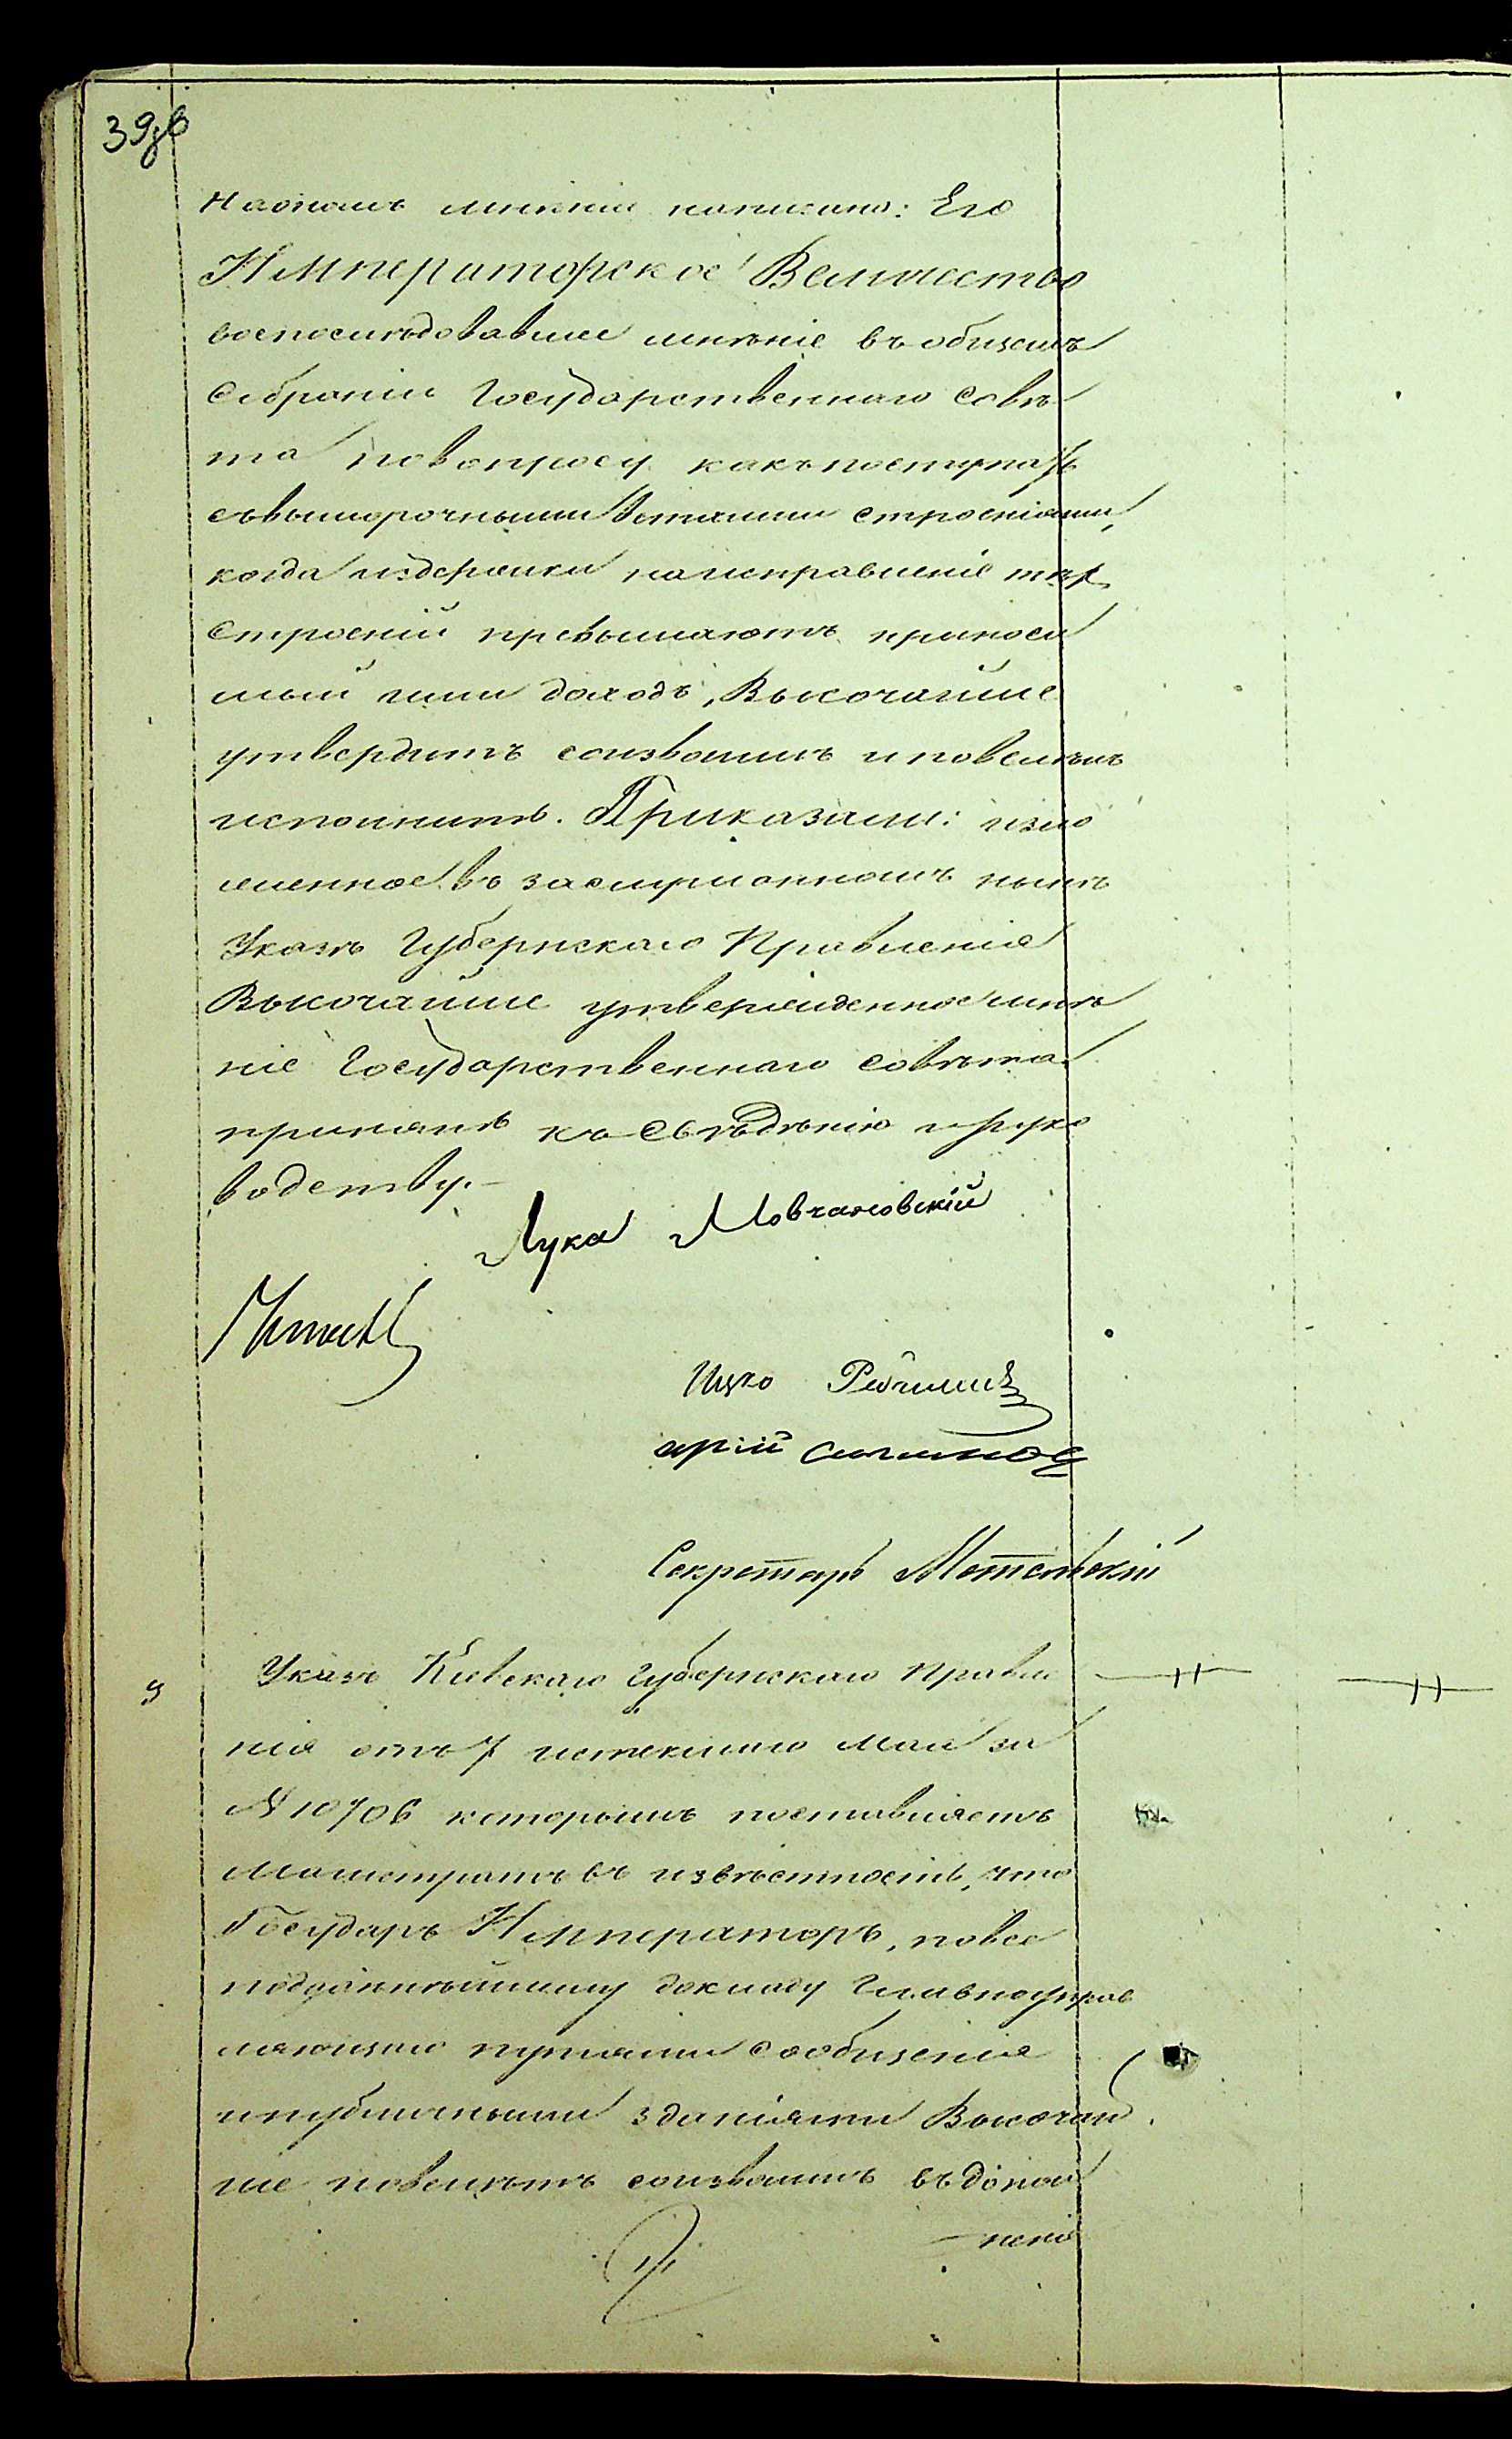 39 об
На ономъ мнѣніи написано: Его
Императорское Величество
воспослѣдовавшее мнѣніе въ общемъ
Собраніи Государственнаго Совѣ
та по вопросу какъ поступать
съ выморочными ветхими строеніями,
когда издержки на исправленіе тѣхъ
Строеній превышаютъ приноси
мый ими доходъ, Высочайше
утвердить соизволилъ и повелѣлъ
исполнить. Приказали: изло
женное въ заслушанномъ нынѣ
Указѣ Губернскаго Правленія
Высочайше утвержденное мнѣ
ніе Государственнаго Совѣта
принять къ Свѣдѣнію и руко
водству.-
Лука Мовчановскій
Ицко
арій
Секретарь
9
Указъ Кіевскаго Губернскаго Правле
нія отъ 7 истекшаго Мая за
№ 10706 которымъ поставляетъ
Магистратъ въ извѣстность, что
Государь Императоръ, по все
подданнѣйшему докладу Главноуправ
ляющаго путями Сообщенія
и публичными зданіями Высочай
ше повелѣть соизволилъ въ допол
неніе